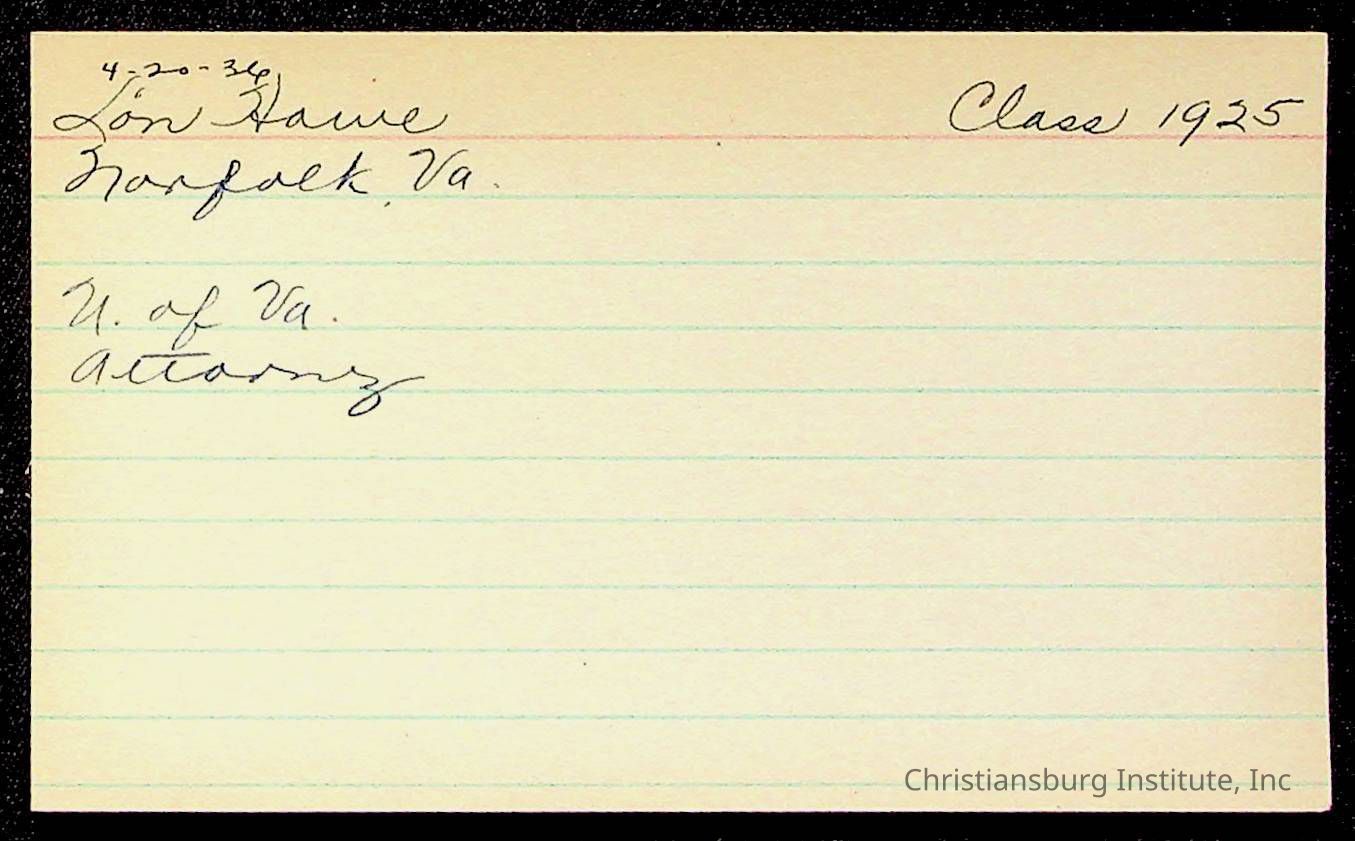 4-20-36
Lon Hawe Class 1925
Norfolk, Va.
U. of Va.
Attorney
Christiansburg Institute, Inc